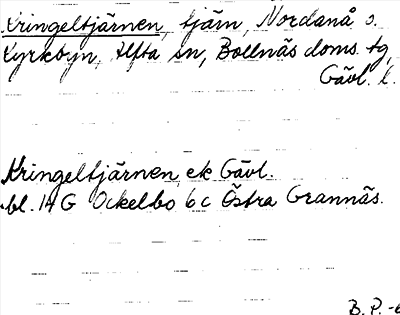 Kringeltjärnen, tjärn, Nordanå o.
Kyrkbyn, Alfta sn, Bollnäs doms. tg,
Gävl. l.
Kringeltjärnen ek Gävl.
bl. 14 G Ockelbo 6 c Östra Grannäs.
B. P. -6